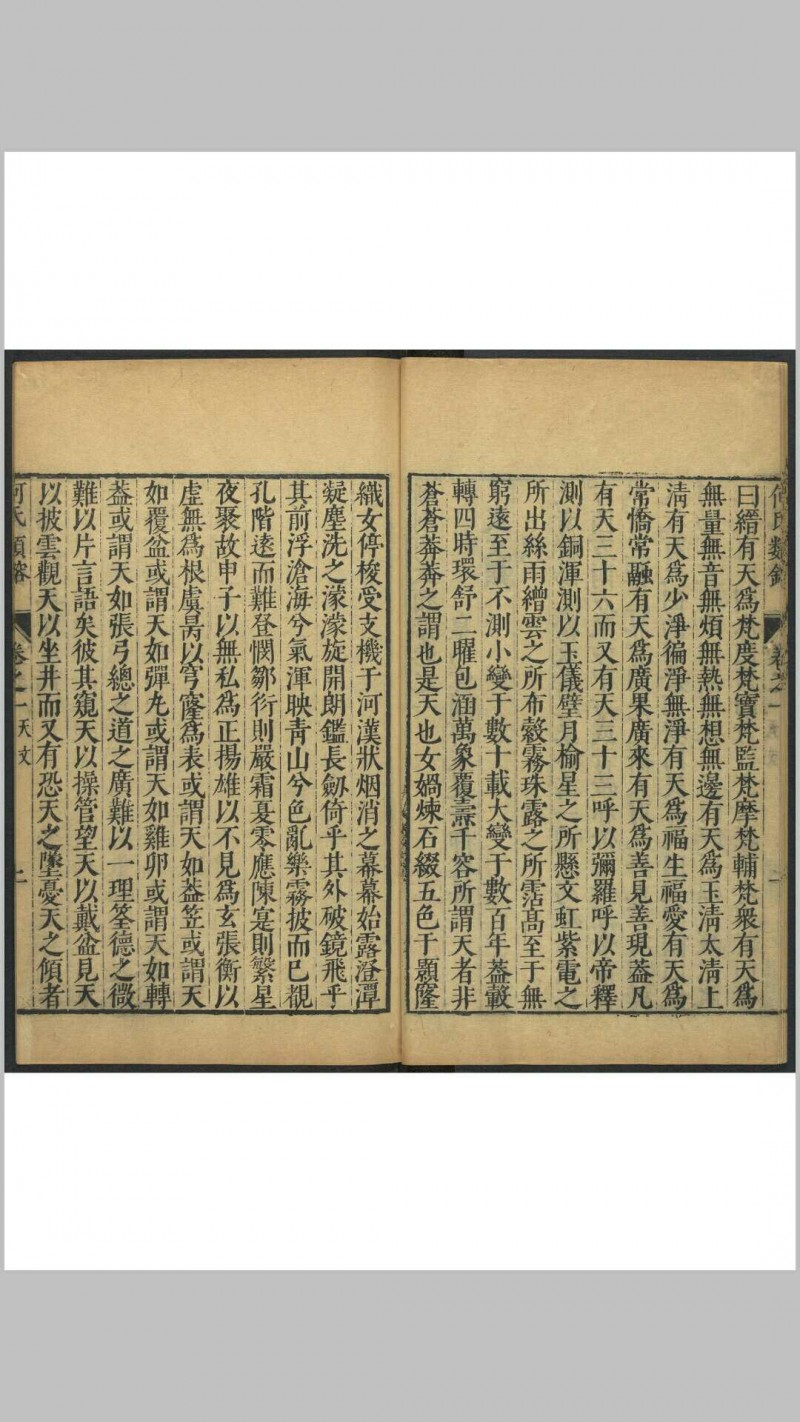 何氏類鎔
卷之一
曰縉有天爲梵度梵寶梵監梵摩梵輔梵衆有天爲
無量無音無煩無熱無想無邊有天爲玉淸太淸上
淸有天爲少淨徧淨無淨有天爲福生福愛有天爲
常憍常融有天爲廣果廣來有天爲善見善現蓋凡
有天三十六而又有天三十三呼以彌羅呼以帝釋
測以銅渾測以玉儀璧月榆星之所懸文虹紫電之
所出絲雨繒雲之所布縠霧珠露之所霑高至于無
窮遠至于不測小變于數十載大變于數百年蓋轂
轉四時環舒二曜包涵萬象覆燾千容所謂天者非
蒼蒼莽莽之謂也是天也女媧煉石綴五色于顥窿
織女停梭受支機于河漢狀烟消之幕幕始露澄潭
凝塵洗之濛濛旋開朗鑑長劒倚乎其外破鏡飛乎
其前浮滄海兮氣渾映青山兮色亂樂霧披而巳覩
孔階逺而難登憫鄒衍則嚴霜夏零應陳寔則繁星
夜聚故申子以無私爲正揚雄以不見爲玄張衡以
虛無爲根虞昺以穹窿爲表或謂天如蓋笠或謂天
如覆盆或謂天如彈丸或謂天如雞卵或謂天如轉
蓋或謂天如張弓總之道之廣難以一理筌德之微
難以片言語矣彼其窺天以操管望天以戴盆見天
以披雲觀天以坐井而又有恐天之墜憂天之傾者
何氏類鎔
卷之一 天文
二